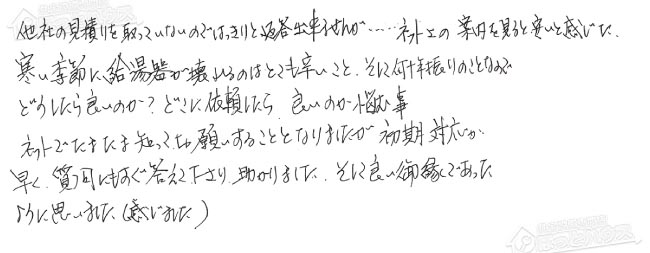 他社の見積りを取っていないのではっきりと返答出来ませんが……ネット上の案内を見ると安いと感じた.
寒い季節に給湯器が壊れるのはとても辛いこと、そして何十年振りのことなので
どうしたら良いのか？どこに依頼したら良いのか悩む事
ネットでたまたま知ってお願いすることとなりましたが初期対応が
早く、質問にもすぐ答えて下さり助かりました、そして良い御縁であった
ように思いました(感じました)